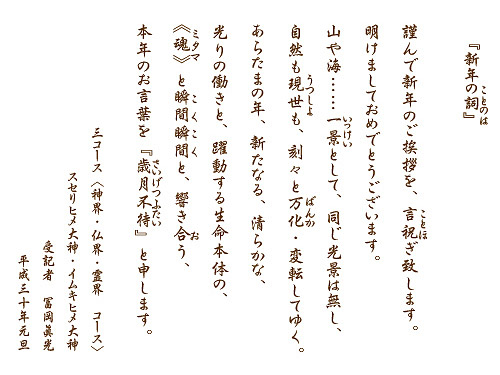 『新年の詞』
謹んで新年のご挨拶を、言祝ぎ致します。
明けましておめでとうございます。
山や海……一景として、同じ光景は無し、
自然も現世も、刻々と万化・変転してゆく。
あらたまの年、新たなる、清らかな、
光りの働きと、躍動する生命本体の、
《魂》と瞬間瞬間と、響き合う、
本年のお言葉を『歳月不待』と申します。
三コース〈神界・仏界・霊界　コース〉
スセリヒメ大神・イムキヒメ大神
受記者　冨岡眞光
平成三十年元旦